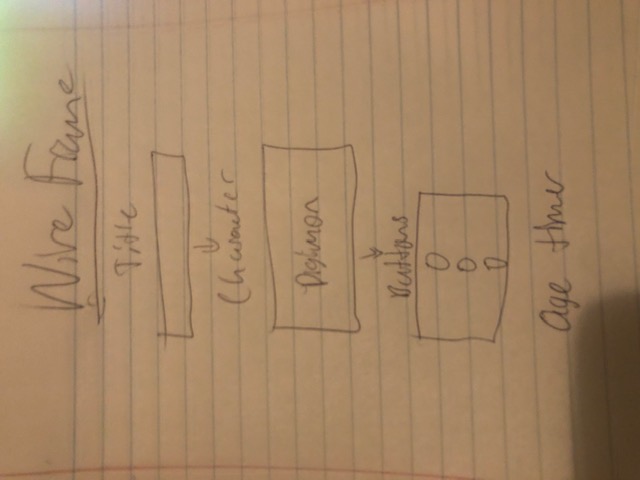 Wire Frame
Title
Character
Digimon
Buttons
Age timer